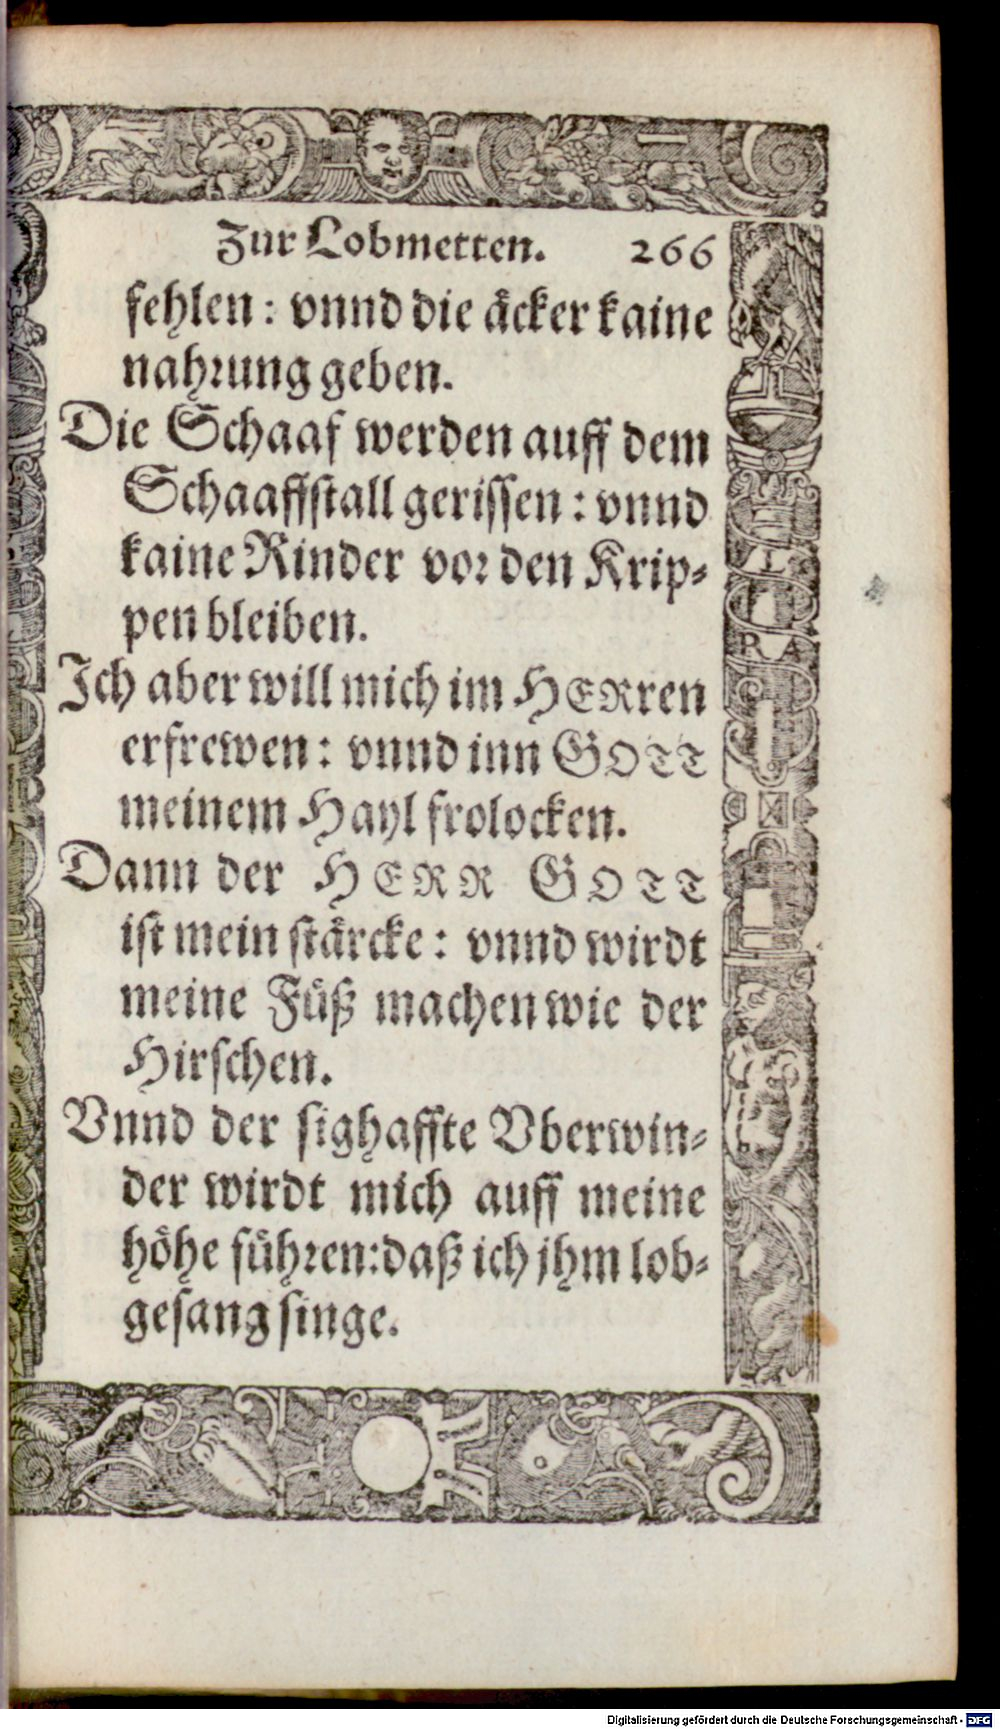 Zur Lobmetten. 266
fehlen: vnnd die äcker kaine
nahrung geben.
Die Schaaf werden auff dem
Schaaffstall gerissen: vnnd
kaine Rinder vor den Krip-
pen bleiben.
Ich aber will mich im HERren
erfrewen: vnnd inn GOTT
meinem Hayl frolocken.
Dann der HERR GOTT
ist mein stärcke: vnnd wirdt
meine Füß machen wie der
Hirschen.
Vnnd der sighaffte Vberwin-
der wirdt mich auff meine
höhe führen: daß ich jhm lob-
gesang singe.
Digitalisierung gefördert durch die Deutsche Forschungsgemeinschaft - DFG